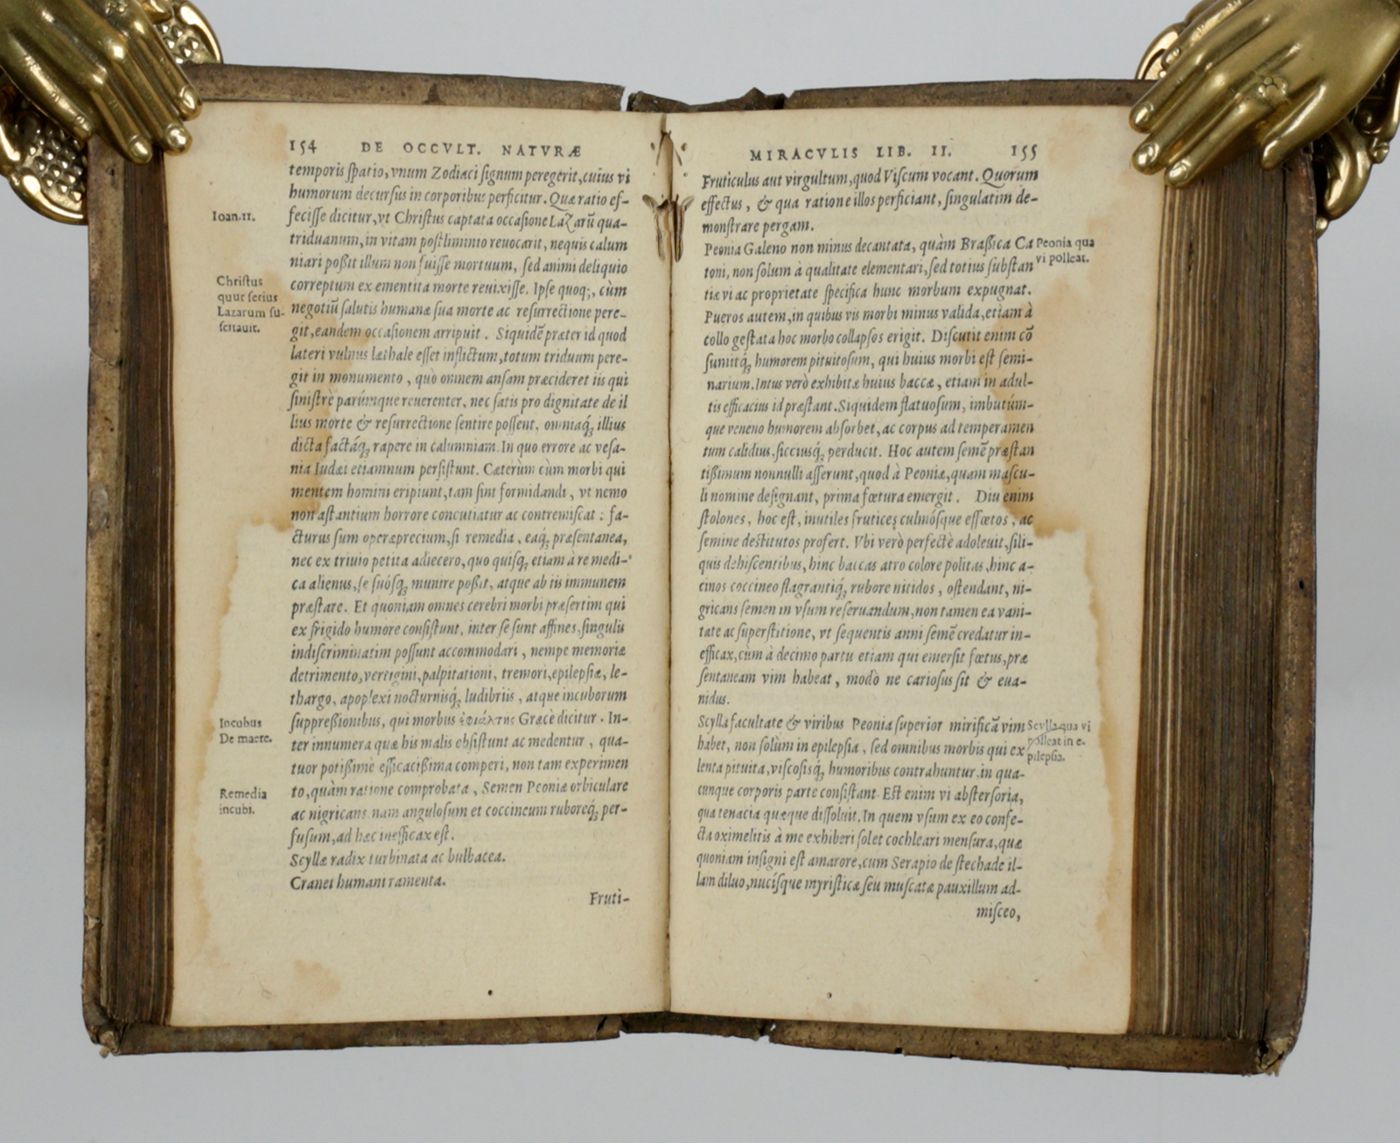 154 DE OCCVLT. NATVRÆ
temporis ſpatio, vnum Zodiaci ſignum peregerit, cuius vi
humorum decurſus in corporibus perficitur. Quæ ratio ef-
Ioan. 11.
feciſſe dicitur, vt Chriſtus captata occaſione Lazarū qua-
triduanum, in vitam poſtliminio reuocarit, nequis calum
niari poßit illum non fuiſſe mortuum, ſed animi deliquio
Chriſtus
quur ſerius
Lazarum ſu-
ſcitauit.
correptum ex ementita morte reuixiſſe. Ipſe quoq;, cùm
negotiū ſalutis humanæ ſua morte ac reſurrectione pere-
git, eandem occaſionem arripuit. Siquidē præter id quod
lateri vulnus læthale eſſet inflictum, totum triduum pere-
git in monumento, quò omnem anſam præcideret iis qui
ſiniſtrè parúmque reuerenter, nec ſatis pro dignitate de il
lius morte & reſurrectione ſentire poſſent, omniaq́; illius
dicta factáq́; rapere in calumniam. In quo errore ac veſa-
nia Iudæi etiamnum perſiſtunt. Cæterùm cùm morbi qui
mentem homini eripiunt, tam ſint formidandi, vt nemo
non aſtantium horrore concutiatur ac contremiſcat: fa-
cturus ſum operæprecium, ſi remedia, eaq́; præſentanea,
nec ex triuio petita adiecero, quo quiſq́; etiam à re medi-
ca alienus, ſe ſuóſq́; munire poßit, atque ab iis immunem
præſtare. Et quoniam omnes cerebri morbi præſertim qui
ex frigido humore conſiſtunt, inter ſe ſunt affines, ſingulis
indiſcriminatim poſſunt accommodari, nempe memoriæ
detrimento, vertigini, palpitationi, tremori, epilepſiæ, le-
thargo, apoplexi nocturniſq́; ludibriis, atque incuborum
Incubus
De maere.
ſuppreßionibus, qui morbus ἐφιάλτης Græcè dicitur. In-
ter innumera quæ his malis obſiſtunt ac medentur, qua-
tuor potißimè efficacißima comperi, non tam experimen
Remedia
incubi.
to, quàm ratione comprobata, Semen Peoniæ orbiculare
ac nigricans nam anguloſum et coccineum ruboreq́; per-
fuſum, ad hæc inefficax eſt.
Scyllæ radix turbinata ac bulbacea.
Cranei humani ramenta.
Fruti-
MIRACVLIS LIB. II. 155
Fruticulus aut virgultum, quod Viſcum vocant. Quorum
effectus, & qua ratione illos perficiant, ſingulatim de-
monſtrare pergam.
Peonia Galeno non minus decantata, quàm Braßica Ca
Peonia qua
vi polleat.
toni, non ſolum à qualitate elementari, ſed totius ſubſtan
tiæ vi ac proprietate ſpecifica hunc morbum expugnat.
Pueros autem, in quibus vis morbi minus valida, etiam à
collo geſtata hoc morbo collapſos erigit. Diſcutit enim cō
ſumitq́; humorem pituitoſum, qui huius morbi eſt ſemi-
narium. Intus verò exhibitæ huius baccæ, etiam in adul-
tis efficacius id præſtant. Siquidem flatuoſum, imbutúm-
que veneno humorem abſorbet, ac corpus ad temperamen
tum calidius, ſicciusq́; perducit. Hoc autem ſemē præſtan
tißimum nonnulli aſſerunt, quod à Peoniæ, quam maſcu-
li nomine deſignant, prima fœtura emergit. Diu enim
ſtolones, hoc eſt, inutiles frutices culmóſque effœtos, ac
ſemine deſtitutos profert. Vbi verò perfectè adoleuit, ſili-
quis dehiſcentibus, hinc baccas atro colore politas, hinc a-
cinos coccineo flagrantiq́; rubore nitidos, oſtendant, ni-
gricans ſemen in vſum reſeruandum, non tamen ea vani-
tate ac ſuperſtitione, vt ſequentis anni ſemē credatur in-
efficax, cùm à decimo partu etiam qui emerſit fœtus, præ
ſentaneam vim habeat, modò ne carioſus ſit & eua-
nidus.
Scylla facultate & viribus Peonia ſuperior mirificā vim
Scylla qua vi
polleat in e-
pilepſia.
habet, non ſolùm in epilepſia, ſed omnibus morbis qui ex
lenta pituita, viſcoſisq́; humoribus contrahuntur, in qua-
cunque corporis parte conſiſtant. Eſt enim vi abſterſoria,
qua tenacia quæque diſſoluit. In quem vſum ex eo confe-
cta oximelitis à me exhiberi ſolet cochleari menſura, quæ
quoniam inſigni eſt amarore, cum Serapio de ſtechade il-
lam diluo, nuciſque myriſticæ ſeu muſcatæ pauxillum ad-
miſceo,